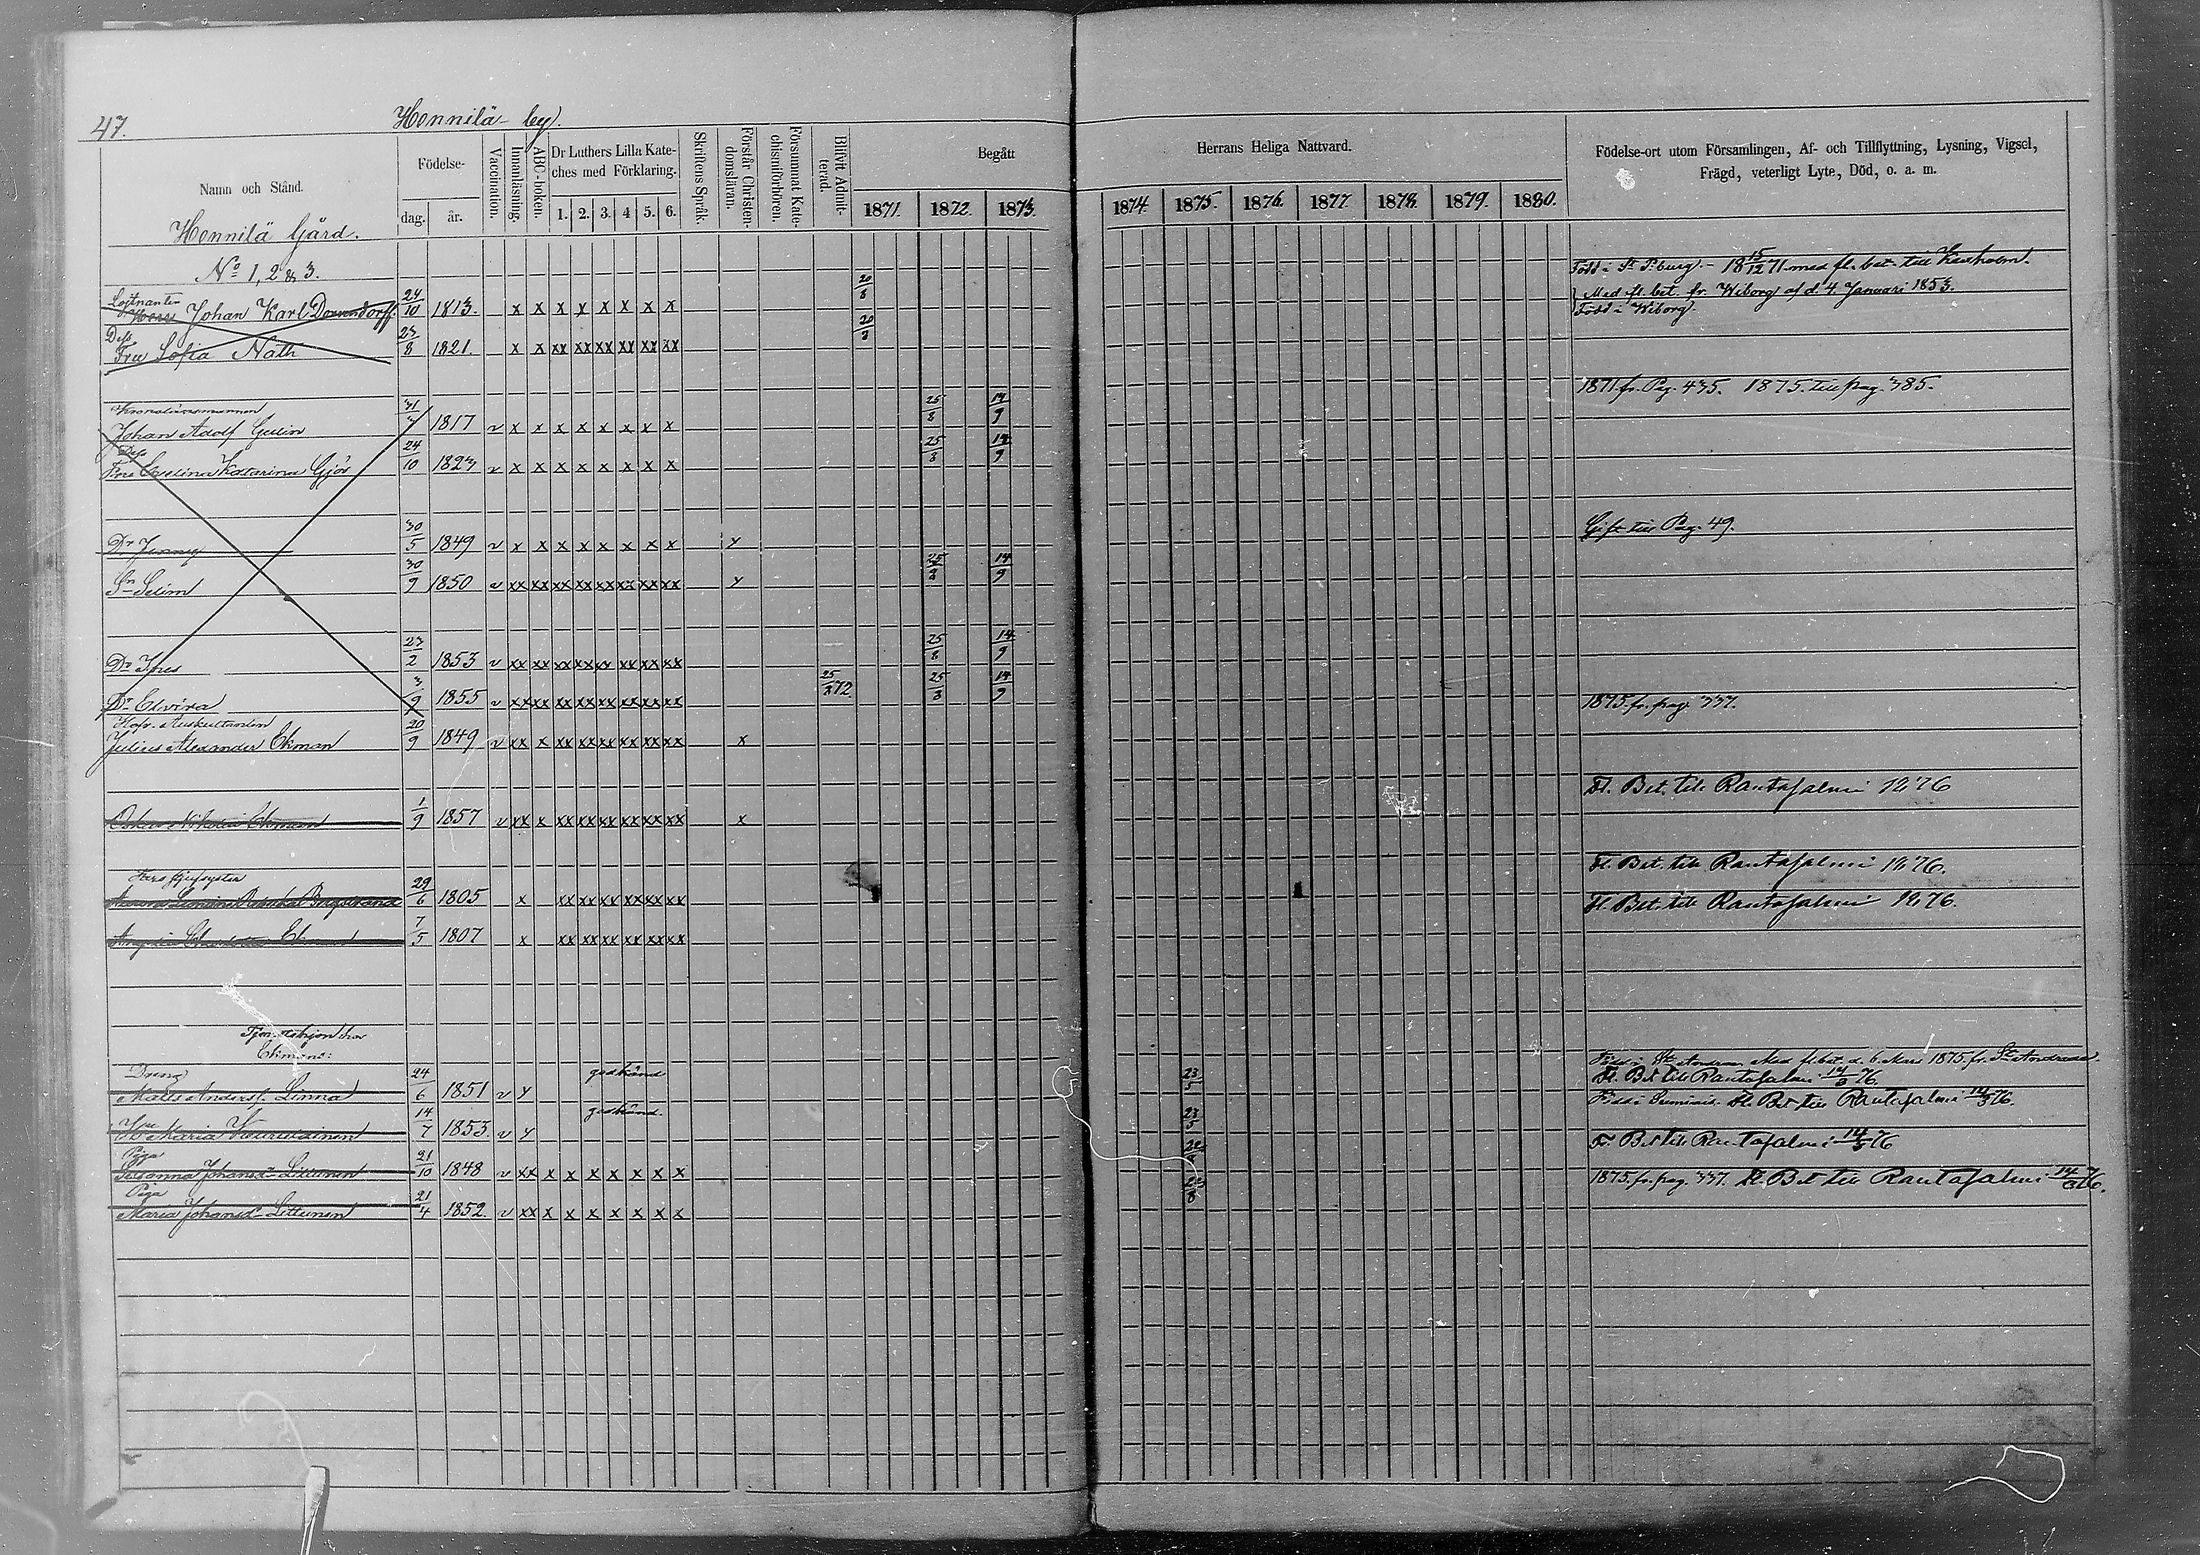 47.
Honnilä by.
Namn och Stånd.
Födelse-
dag.
år.
Vaccination.
Innanläsning.
ABC-boken.
Dr Luthers Lilla Kate-
ches med Förklaring.
1. 2. 3. 4 5. 6.
Skriftens Språk.
Förstår Christen-
domsläran.
Försummat Kate-
chismiförhören.
Blifvit Admit-
terad.
Begått
Herrans Heliga Nattvard.
1871. 1872. 1873. 1874. 1875. 1876. 1877. 1878. 1879. 1880.
Födelse-ort utom Församlingen, Af- och Tillflyttning, Lysning, Vigsel,
Frägd, veterligt Lyte, Död, o. a. m.
Honnilä Gård.
No 1, 2 & 3.
Född i St. P:burg. - 18 15/12 71 med fl. bet. till Kexholm.
Löjtnanten
Herr Johan Karl 24/10 1813. x x x x x x x x 20/8
Med fl. bet. fr. Wiborg af d. 4 Januari 1853.
Född i Wiborg.
Dess
Fru Sofia Nath 23/8 1821. x x xx xx xx xx xx xx 20/8
1871 fr. Pag. 435. 1875. till pag. 385.
Johan Adolf 31/7 1817 v x x x x x x x x 25/8 14/9
Dess
Fru Evelina Katarina Gjös 24/10 1823 v x x x x x x x x 25/8 14/9
Gift till Pag. 49.
Dr Jenny 30/5 1849 v x x x x x x x x y
Sn Selim 30/9 1850 v xx xx xx xx xx xx xx xx y 25/8 14/9
Dr Ines 23/2 1853 v xx xx xx xx xx xx xx xx 25/8 14/9
Dr Elvira 3/9 1855 v xx xx xx xx xx xx xx xx 25/8 72 25/8 14/9
1875. fr. pag. 337.
Hofr. Auskultanten
Julius Alexander Ekman 20/9 1849 v xx x xx xx xx xx xx xx x
Fl. Bet. till Rantasalmi 1876
Oskar Nikolai Ekman 1/9 1857 v xx x xx xx xx xx xx xx x
Fl. Bet. till Rantasalmi 1876.
29/6 1805 x xx xx xx xx xx xx
Fl. Bet. till Rantasalmi 1876.
Ekman 7/5 1807 x xx xx xx xx xx xx
Ekmans:
Dreng
Matts Andersf. Linna 24/6 1851 v y godkänd 23/5
Med fl. bet. d. 6 Mars 1875 fr. St. Andreae.
Fl. Bet till Rantasalmi 14/3 76.
Född i Fl. Bet till Rantasalmi 14/3 76.
Maria 14/7 1853. v y godkänd. 23/5
Fl. Bet till Rantasalmi 14/3 76
Piga
Susanna Johansd. 21/10 1848 v xx x x x x x x x
1875. fr. pag. 337. Fl. Bet till Rantasalmi 14/3 76.
Piga
Maria Johansd. 21/4 1852. v xx x x x x x x x